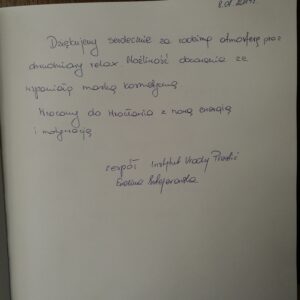 Dziękujemy serdecznie za rodzinną atmosferę oraz
cudowny relax Możliwość obcowania ze
wspaniałą marką kosmetyczną
Wracamy do Wrocławia z nową energią
i motywacją
zespół Instytut Urody
Ewelina